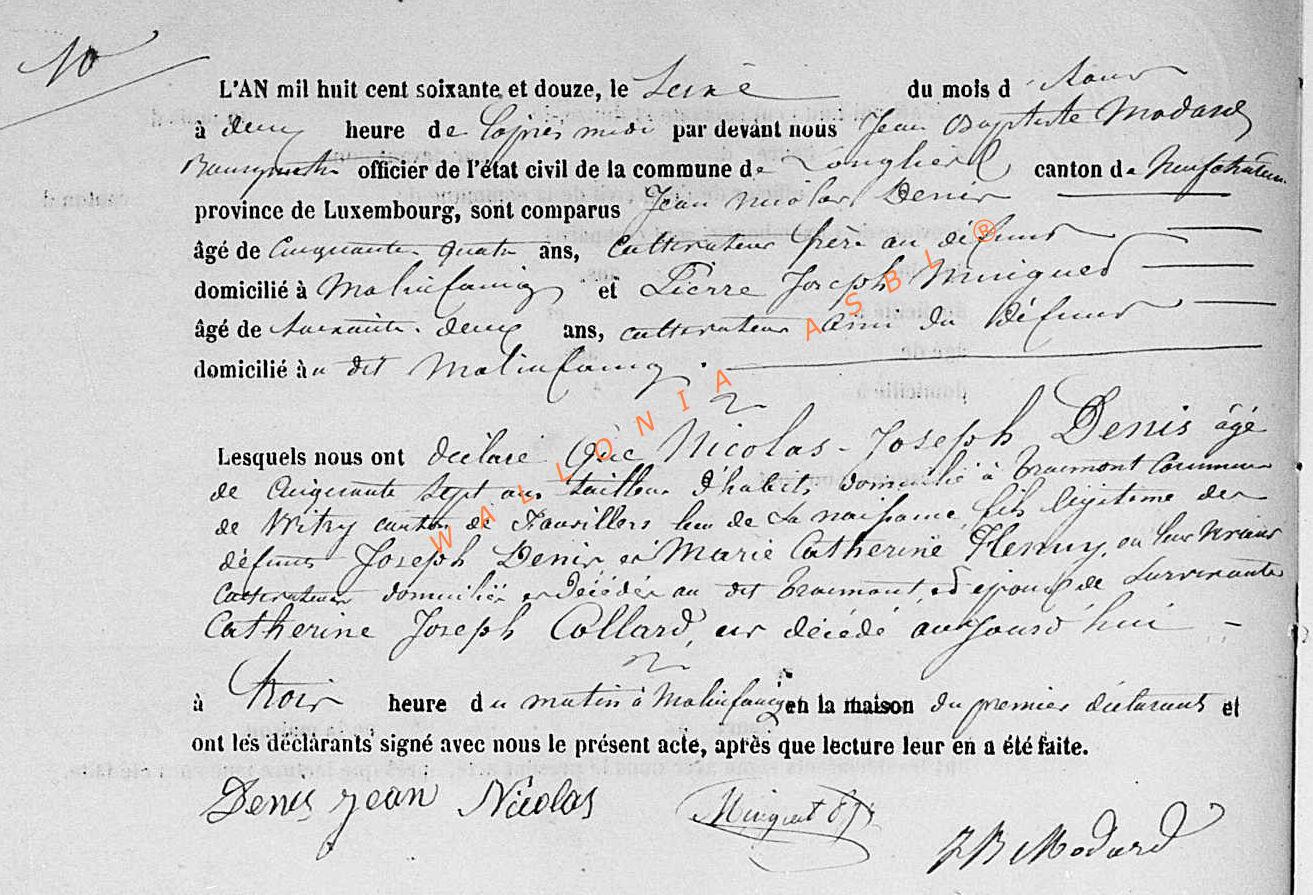 10
L'AN mil huit cent soixante et douze, le Seize du mois d'Aout
à deux heure de l'après midi par devant nous Jean Baptiste Modard
Bourgmestre officier de l'état civil de la commune de Longlier canton de Neufchâteau
province de Luxembourg, sont comparus Jean Nicolas Denis
âgé de Cinquante quatre ans, Cultivateur frère au défunt
domicilié à Malinfaing et Pierre Joseph Minguet
âgé de Soixante deux ans, cultivateur ami du défunt
domicilié au dit Malinfaing.
Lesquels nous ont déclaré Que Nicolas-Joseph Denis âgé
de Cinquante Sept ans tailleur d'habits domicilié à Traimont Commune
de Witry canton de Fauvillers lieu de sa naissance, fils légitime des
défunts Joseph Denis et Marie Catherine en leur vivant
Cultivateurs domiciliés et décédés au dit Traimont, époux de Survivante
Catherine Joseph Collard, est décédé aujourd'hui
à trois heure du matin à Malinfaing en la maison du premier déclarant et
ont les déclarants signé avec nous le présent acte, après que lecture leur en a été faite.
Denis jean Nicolas Minguet JBModard
WALLONIA ASBL ®